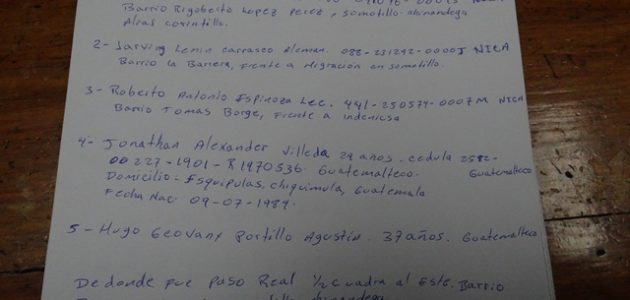 Barrio Rigoberto Lopez Perez, Somotillo - chinandega
Alias corintillo.
2- Jarving Lenin Carrasco Aleman. 088-251292-0000J NICA
Barrio la Barrera, Frente a Migración en Somotillo.
3- Roberto Antonio Espinoza Lec. 441-250574-0007M NICA
Barrio Tomas Borge, Frente a indeniusa
4- Jonathan Alexander Villeda 29 años. cedula 2582-
00227-1901- R1970536. Guatemalteco. Guatemalteco
Domicilio: Esquipulas, chiquimula, Guatemala
Fecha Nac. 09-07-1989.
5- Hugo Geovany Portillo Agustin. 37 años. Guatemalteco
De donde fue Paso Real 1/2 Cuadra al Este. Barrio